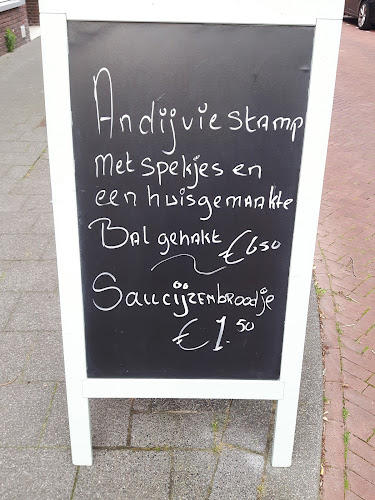 Andijvie stamp
Met spekjes en
een huisgemaakte
Bal gehakt €6 50
Saucijzenbroodje
€1.50